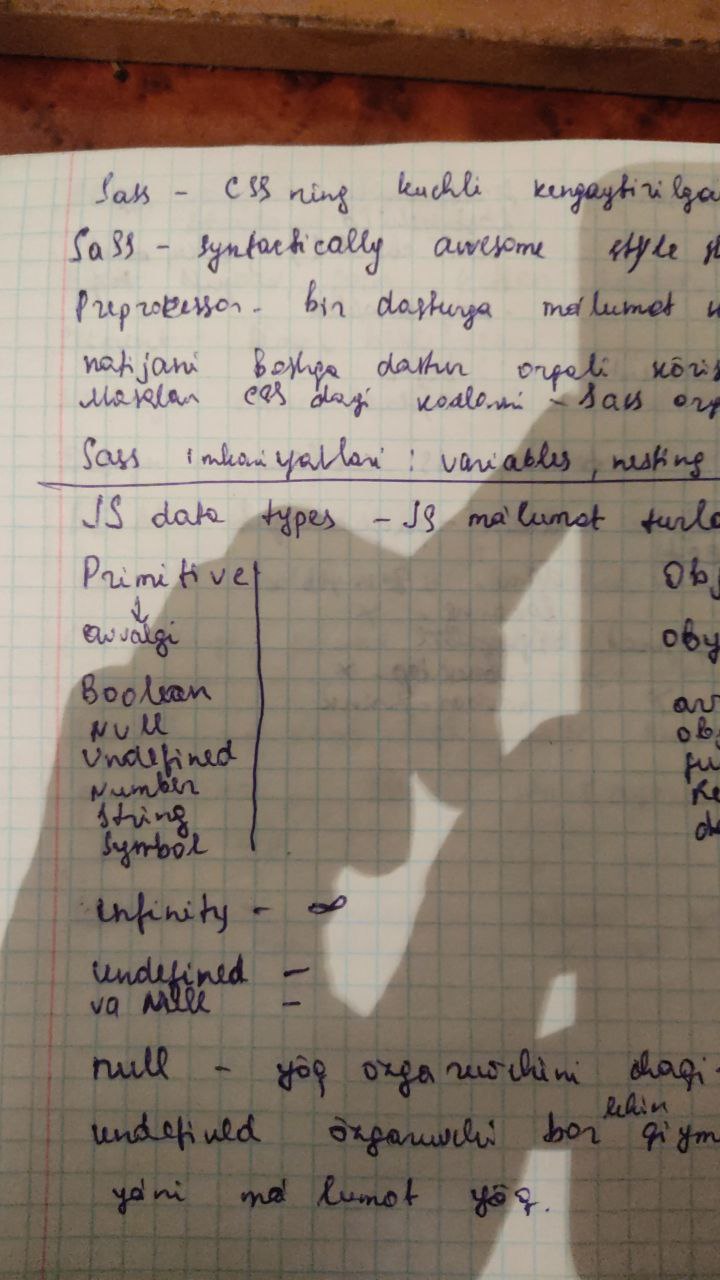 Sass - CSS ning kuchli kengaytirilga
SaSS - syntactically awesome style s
Preprocessor - bir dasturga ma'lumot
natijani boshqa dastur orqali ko'ris
Masalan CSS dagi kodlarni - Sass orq
Sass imkaniyatlari : variables, nesting
JS data types - JS ma'lumot turla
Primitive Obj
↓
avvalgi oby
Boolean arr
Null obj
Undefined fu
Number Re
String da
Symbol
Infinity - ∞
Undefined -
va Null -
null - yo'q o'zgaruvchini chaqi-
undefined o'zgaruvchi bor lekin qiym
ya'ni ma'lumot yo'q.